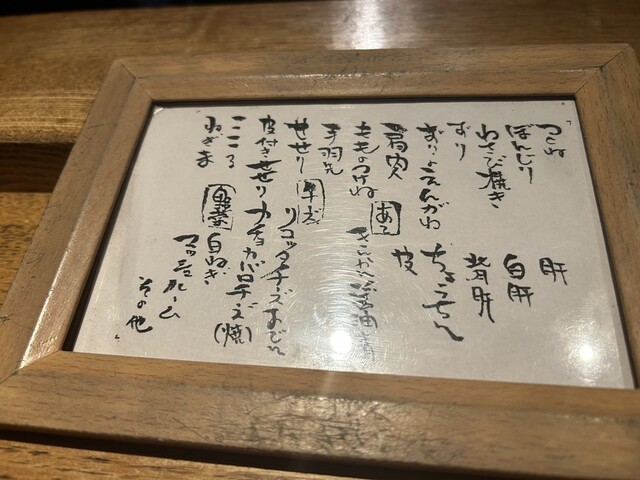 つくね
ぼんじり
わさび焼き
ずり
ずりえんがわ
若肉
もものつけね
手羽先
せせり
皮付きせせり
こころ
ねぎま
肝
白肝
背肝
ちょうちん
皮
あえ
リコッタチーズおでん
カチョカバロチーズ(焼)
野菜
白ねぎ
マッシュルーム
その他